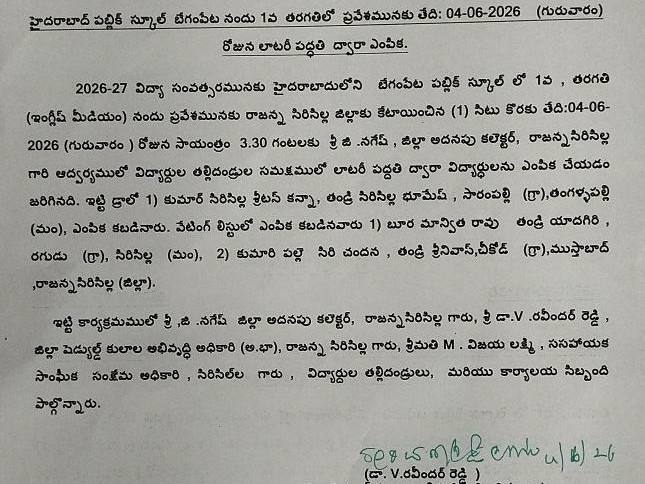 హైదరాబాద్ పబ్లిక్ స్కూల్ బేగంపేట నందు 1వ తరగతిలో ప్రవేశమునకు తేది: 04-06-2026 (గురువారం)
రోజున లాటరీ పద్ధతి ద్వారా ఎంపిక.
2026-27 విద్యా సంవత్సరమునకు హైదరాబాదులోని బేగంపేట పబ్లిక్ స్కూల్ లో 1వ , తరగతి
(ఇంగ్లీష్ మీడియం) నందు ప్రవేశమునకు రాజన్న సిరిసిల్ల జిల్లాకు కేటాయించిన (1) సిటు కొరకు తేది:04-06-
2026 (గురువారం ) రోజున సాయంత్రం 3.30 గంటలకు శ్రీ జి .నగేష్ , జిల్లా అదనపు కలెక్టర్, రాజన్నసిరిసిల్ల
గారి ఆద్వర్యములో విద్యార్దుల తల్లిదండ్రుల సమక్షములో లాటరీ పద్దతి ద్వారా విద్యార్ధులను ఎంపిక చేయడం
జరిగినది. ఇట్టి డ్రాలో 1) కుమార్ సిరిసిల్ల శ్రీటస్ కన్నా, తండ్రి సిరిసిల్ల భూమేష్ , సారంపల్లి (గ్రా),తంగళ్ళపల్లి
(మం), ఎంపిక కబడినారు. వేటింగ్ లిస్టులో ఎంపిక కబడినవారు 1) బూర మాన్విత రావు తండ్రి యాదగిరి ,
రగుడు (గ్రా), సిరిసిల్ల (మం), 2) కుమారి పల్లె సిరి చందన , తండ్రి శ్రీనివాస్,చీకోడ్ (గ్రా),ముస్తాబాద్
,రాజన్నసిరిసిల్ల (జిల్లా).
ఇట్టి కార్యక్రమములో శ్రీ ,జి .నగేష్ జిల్లా అదనపు కలెక్టర్, రాజన్నసిరిసిల్ల గారు, శ్రీ డా.V .రవీందర్ రెడ్డి ,
జిల్లా షెడ్యుల్డ్ కులాల అభివృద్ధి అధికారి (అ.భా), రాజన్న సిరిసిల్ల గారు, శ్రీమతి M . విజయ లక్ష్మి , ససహాయక
సాంఘీక సంక్షేమ అధికారి , సిరిసిల్‌ల గారు , విద్యార్దుల తల్లిదండ్రులు, మరియు కార్యాలయ సిబ్బంది
పాల్గొన్నారు.
(డా. V.రవీందర్ రెడ్డి )